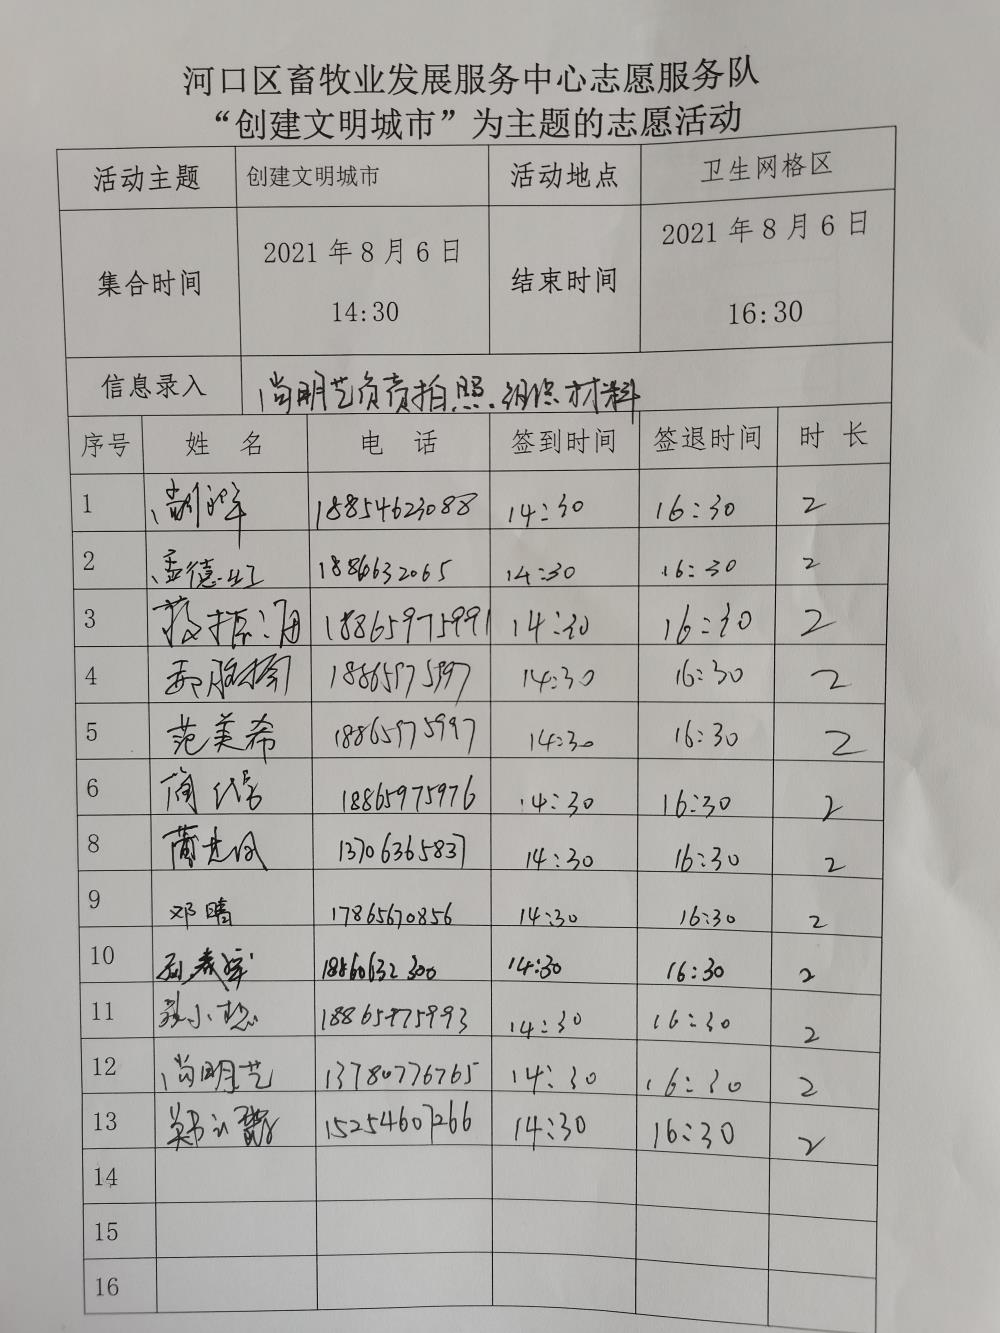 河口区畜牧业发展服务中心志愿服务队
“创建文明城市”为主题的志愿活动
活动主题 创建文明城市 活动地点 卫生网格区
集合时间 2021年8月6日 14:30 结束时间 2021年8月6日 16:30
信息录入 尚明芝负责拍照.组织材料
序号 姓 名 电 话 签到时间 签退时间 时 长
1 18854623088 14:30 16:30 2
2 孟德红 1886632065 14:30 16:30 2
3 18865975991 14:30 16:30 2
4 18865975997 14:30 16:30 2
5 范美希 18865975997 14:30 16:30 2
6 18865975976 14:30 16:30 2
8 13706365837 14:30 16:30 2
9 邓晴 17865670856 14:30 16:30 2
10 14:30 16:30 2
11 18865975993 14:30 16:30 2
12 尚明芝 13780776765 14:30 16:30 2
13 15254607266 14:30 16:30 2
14
15
16